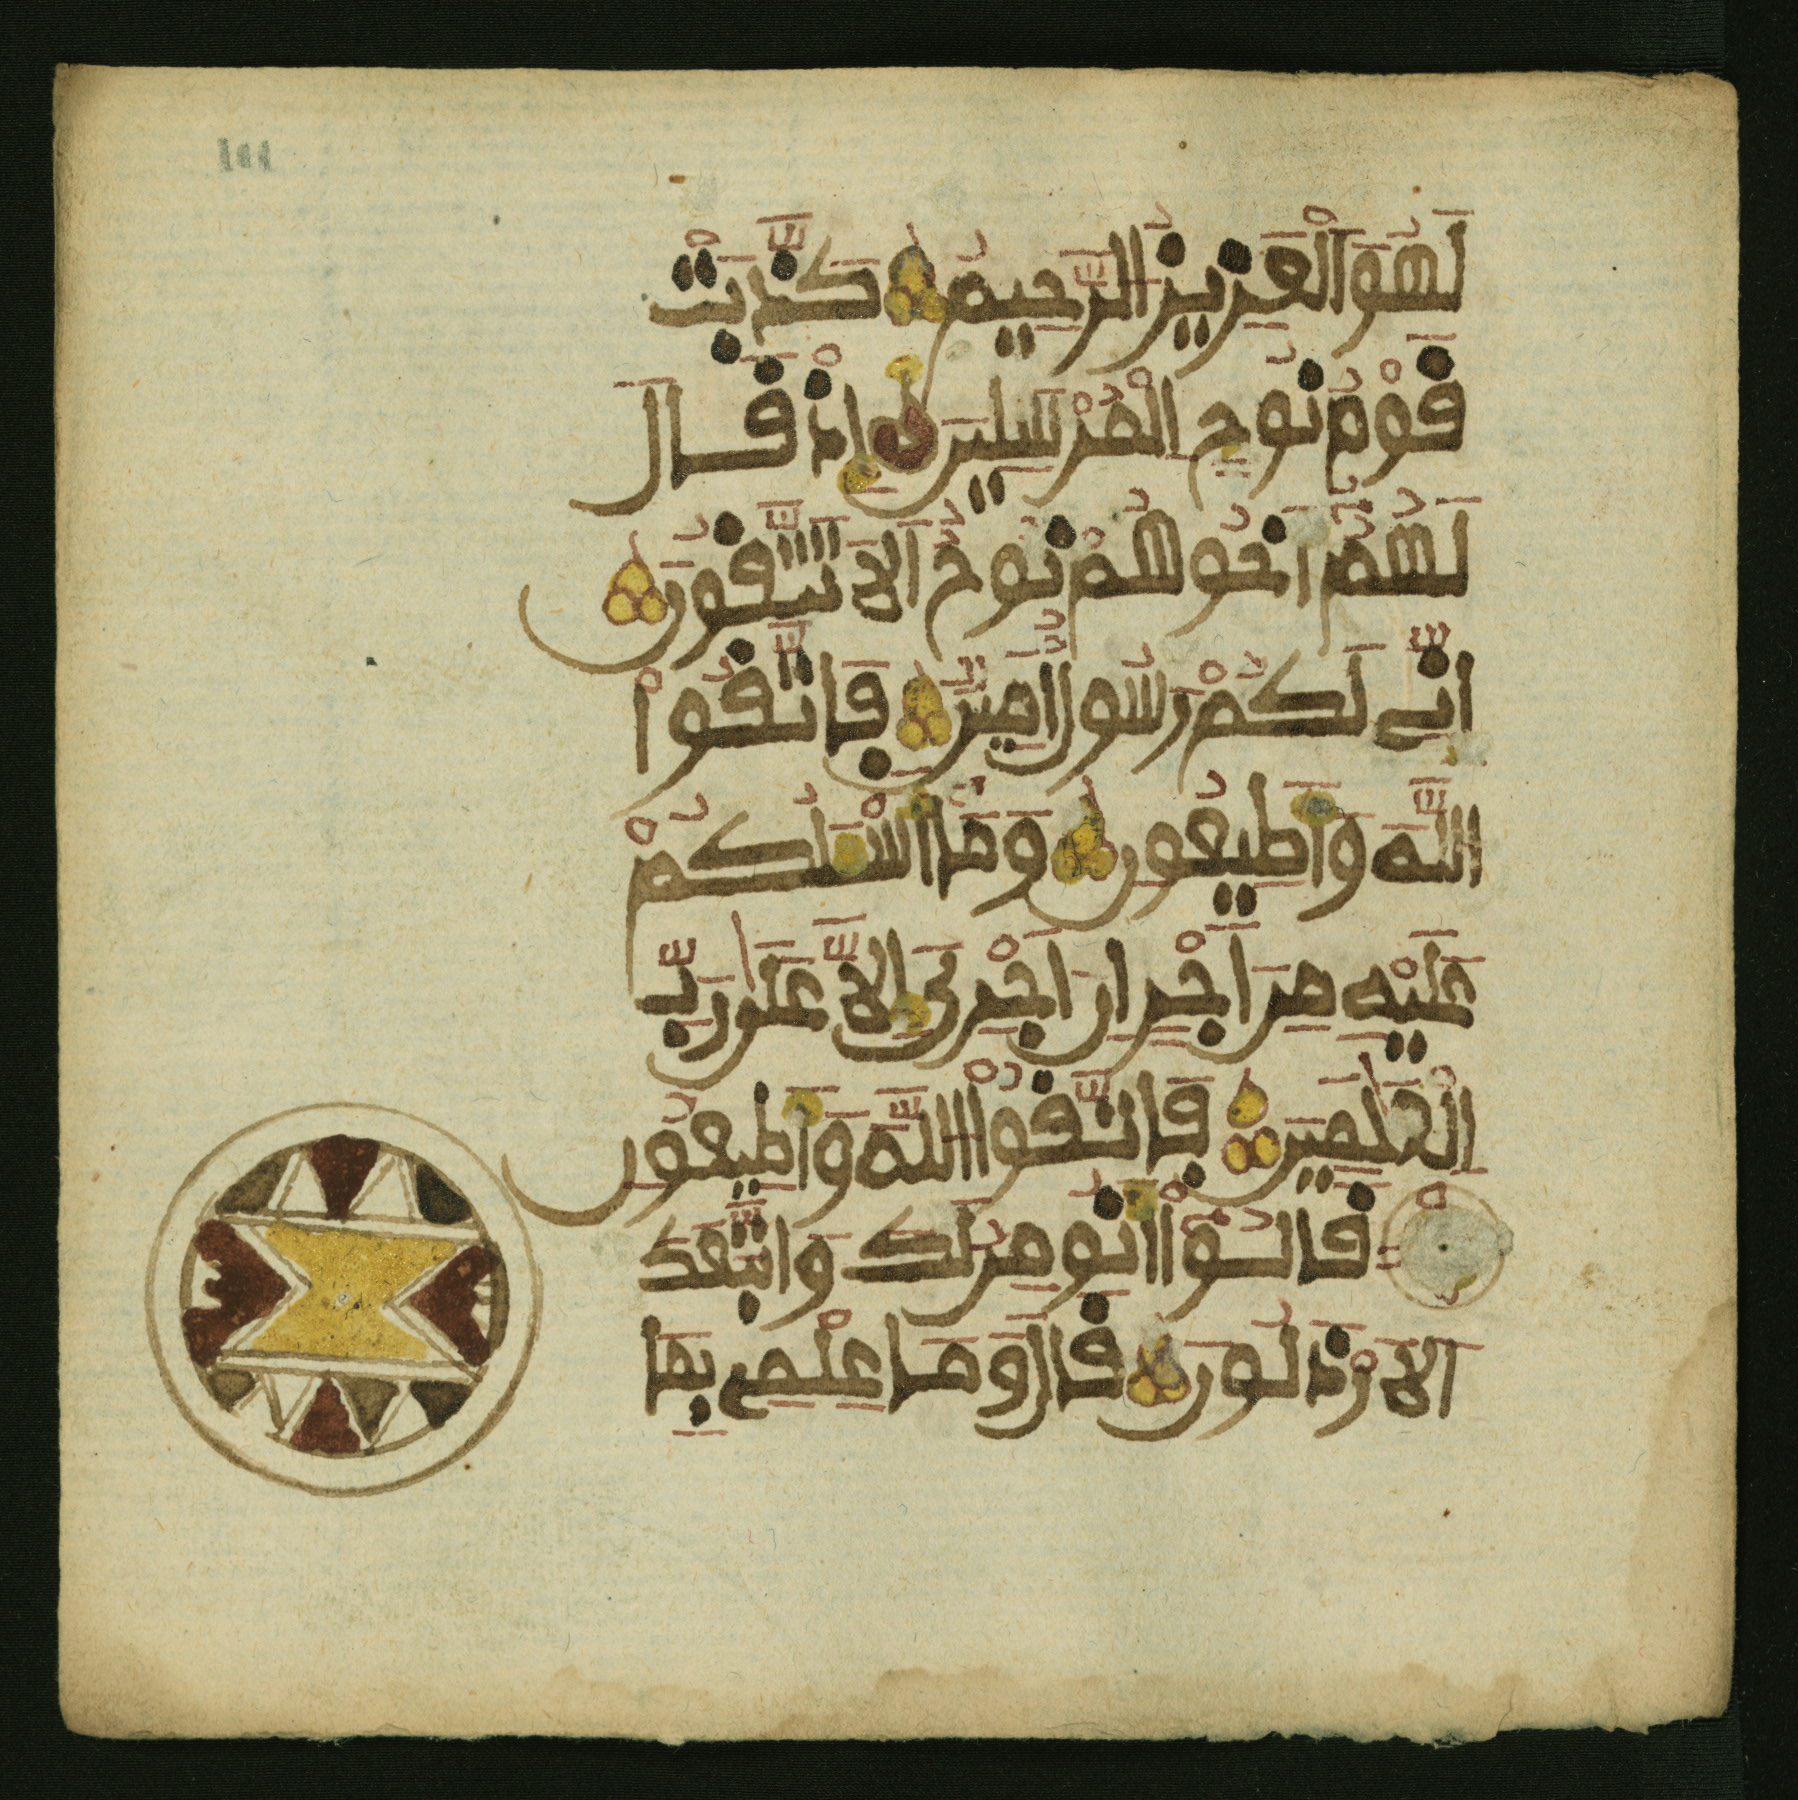 لَهُوَ الْعَزِيزُ الرَّحِيمُ كَذَّبَتْ
قَوْمُ نُوحٍ الْمُرْسَلِينَ إِذْ قَالَ
لَهُمُ أَخُوهُمْ نُوحٌ أَلَا تَتَّقُونَ
إِنِّي لَكُمْ رَسُولٌ أَمِينٌ فَاتَّقُوا
اللَّهَ وَأَطِيعُونِ وَمَا أَسْـَٔلُكُمْ
عَلَيْهِ مِنَ أَجْرٍ إِنَ أَجْرِيَ إِلَّا عَلَىٰ رَبِّ
الْعَٰلَمِينَ فَاتَّقُوا اللَّهَ وَأَطِيعُونِ
قَالُوا أَنُومِنُ لَكَ وَاتَّبَعَكَ
الَارْذَلُونَ قَالَ وَمَا عِلْمِي بِمَا